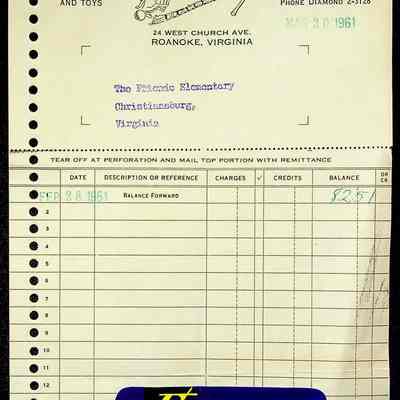 AND TOYS
PHONE DIAMOND 2-3128
MAR 30 1961
24 WEST CHURCH AVE.
ROANOKE, VIRGINIA
The Friends Elementary
Christiansburg,
Virginia
TEAR OFF AT PERFORATION AND MAIL TOP PORTION WITH REMITTANCE
DATE DESCRIPTION OR REFERENCE CHARGES ✓ CREDITS BALANCE DR CR
FEB 28 1961 BALANCE FORWARD 82.51
2
3
4
5
6
7
8
9
10
11
12